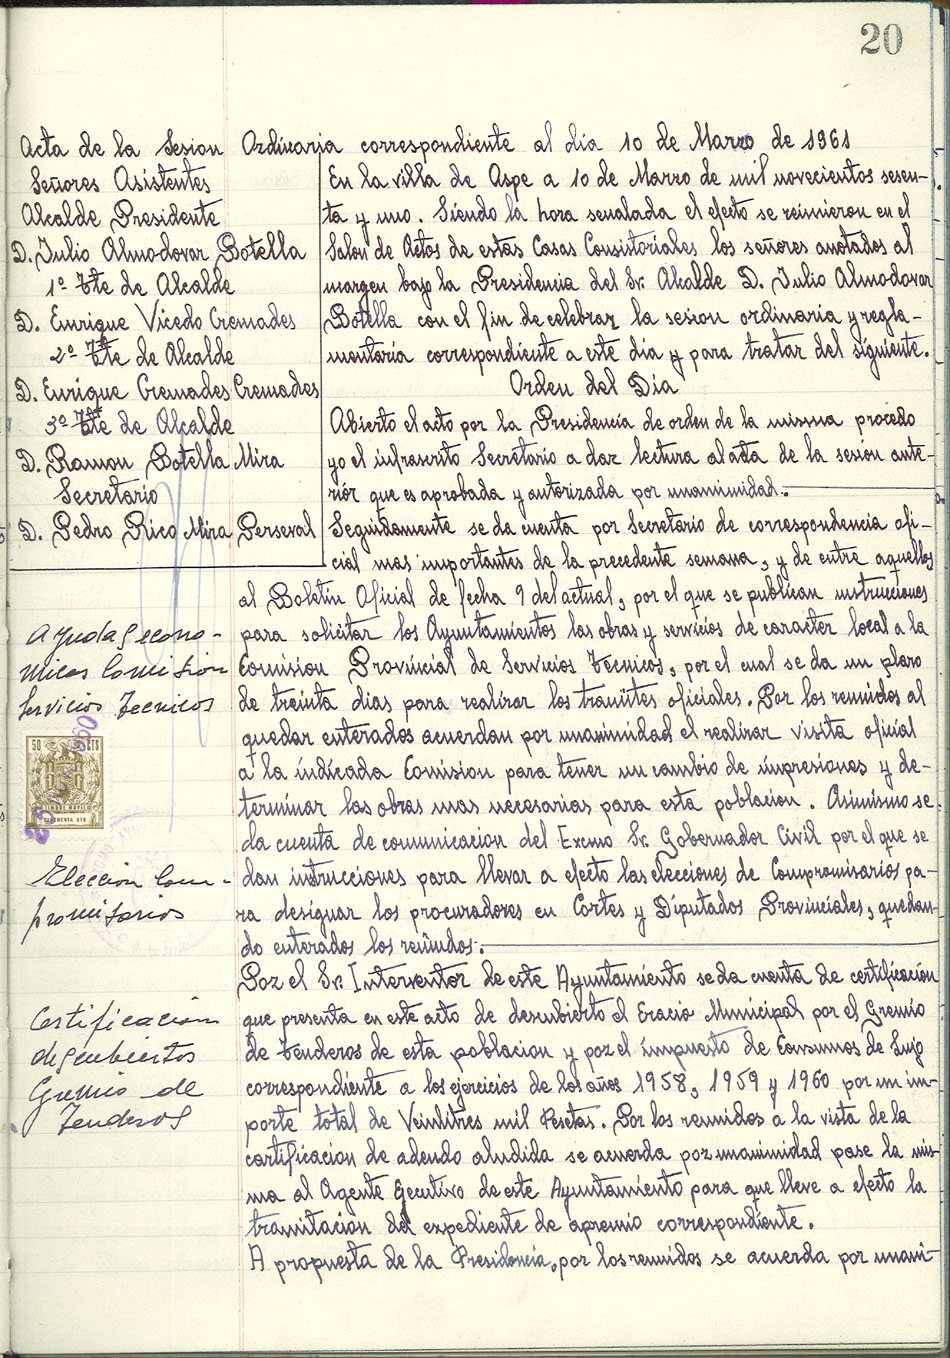 20
Acta de la Sesion Ordinaria correspondiente al día 10 de Marzo de 1961
Señores Asistentes
Alcalde Presidente
D. Julio Almodovar Botella
1º Tte de Alcalde
D. Enrique Vicedo Cremades
2º Tte de Alcalde
D. Enrique Cremades Cremades
3º Tte de Alcalde
D. Ramon Botella Mira
Secretario
D. Pedro Rico Mira Perseval
En la villa de Aspe a 10 de Marzo de mil novecientos sesen-
ta y uno. Siendo la hora senalada el efecto se reunieron en el
Salon de Actos de estas Casas Consistoriales los señores anotados al
margen bajo la Presidencia del Sr. Alcalde D. Julio Almodovar
Botella con el fin de celebrar la sesion ordinaria y regla-
mentaria correspondiente a este dia y para tratar del siguiente.
Orden del Dia
Abierto el acto por la Presidencia de orden de la misma procedo
yo el infrascrito Secretario a dar lectura al acta de la sesion ante-
rior que es aprobada y autorizada por unanimidad.
Seguidamente se da cuenta por Secretario de correspondencia ofi-
cial mas importantes de la precedente semana, y de entre aquellos
al Boletin Oficial de fecha 9 del actual, por el que se publican instrucciones
para solicitar los Ayuntamientos las obras y servicios de caracter local a la
Comision Provincial de Servicios Tecnicos, por el cual se da un plazo
de treinta dias para realizar los tramites oficiales. Por los reunidos al
quedar enterados acuerdan por unanimidad el realizar visita oficial
a la indicada Comision para tener un cambio de impresiones y de-
terminar las obras mas necesarias para esta poblacion. Asimismo se
da cuenta de comunicacion del Excmo Sr. Gobernador Civil por el que se
dan intrucciones para llevar a efecto las elecciones de Compromisarios pa-
ra desiguar los procuradores en Cortes y Diputados Provinciales, quedan-
do enterados los reunidos.
Por el Sr. Interventor de este Ayuntamiento se da cuenta de certificación
que presenta en este acto de descubierto el Eracio Municipal por el Gremio
de tenderos de esta poblacion y por el impuesto de Consumos de Lujo
correspondiente a los ejercicios de los años 1958, 1959 y 1960 por un im-
porte total de Veintitres mil Pesetas. Por los reunidos a la vista de la
certificacion de adendo aludida se acuerda por unanimidad pase la mis-
ma al Agente Ejecutivo de este Ayuntamiento para que lleve a efecto la
tramitacion del expediente de apremio correspondiente.
A propuesta de la Presidencia, por los reunidos se acuerda por unani-
Ayudas econo-
micas Comision
Servicios Tecnicos
50 CTS
TIMBRE MOVIL
CINCUENTA CTS
Eleccion Com-
promisarios
Certificacion
descubiertos
Gremio de
Tenderos